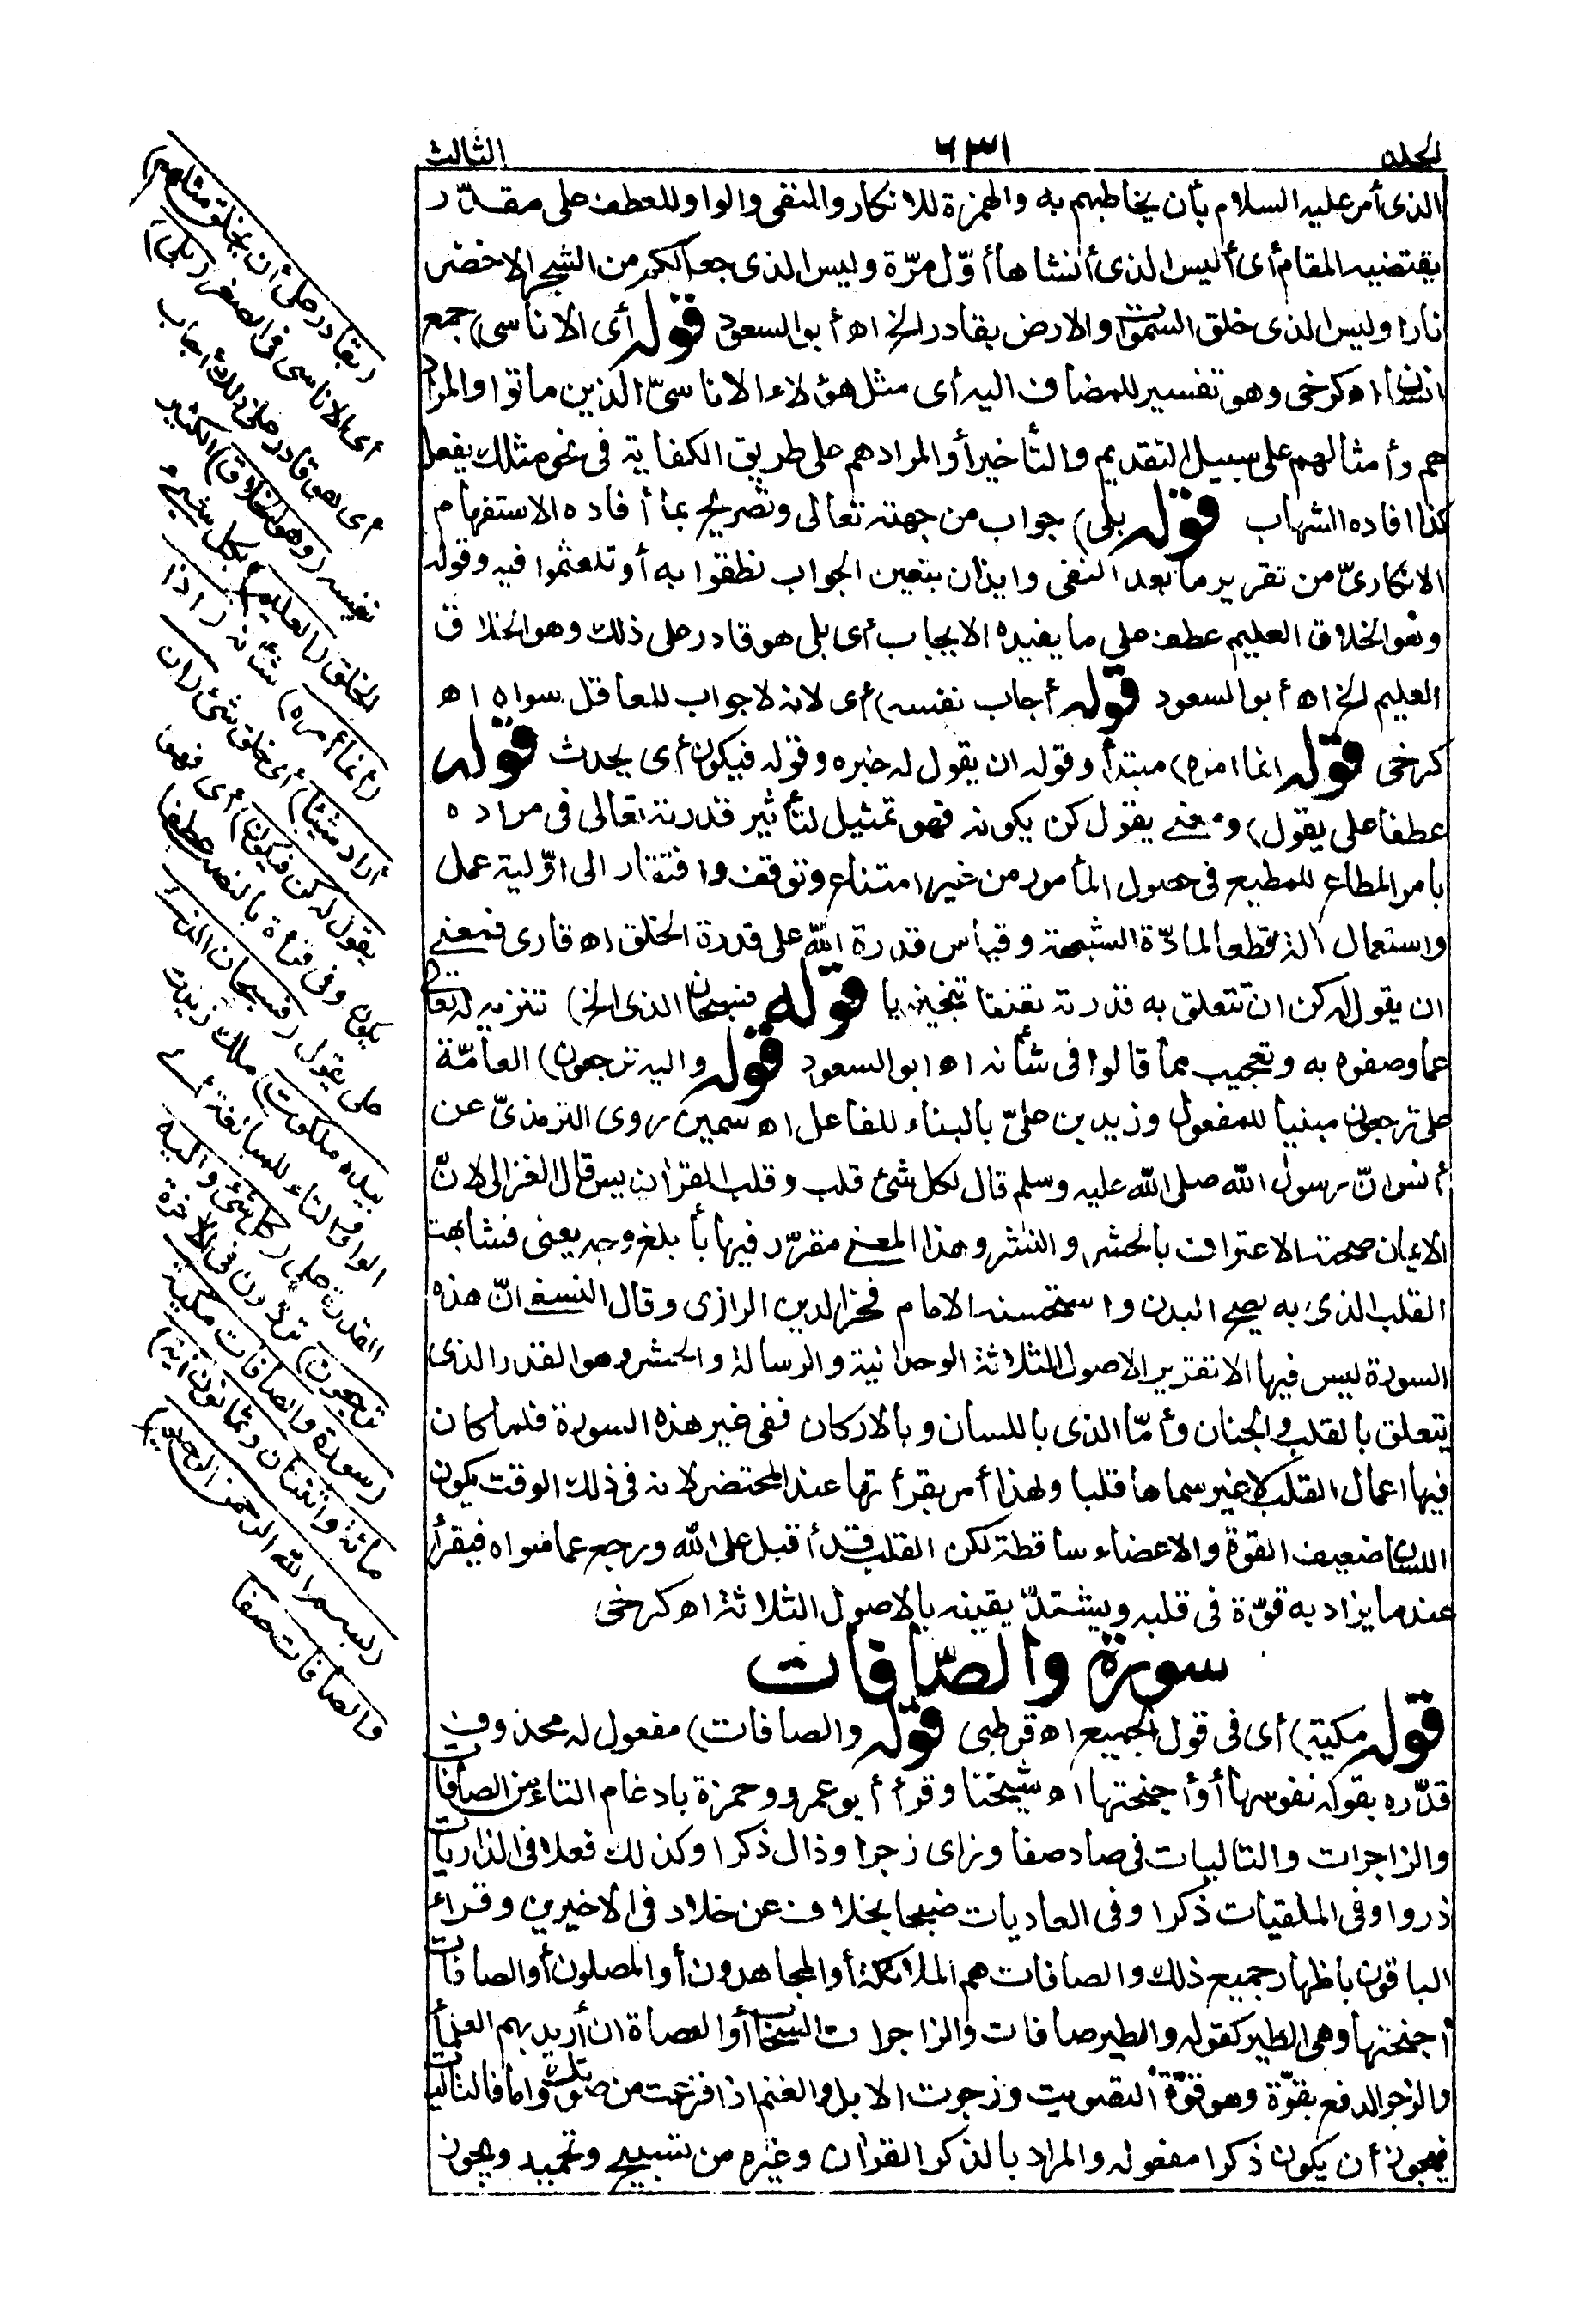 الجلد
٦٣١
الثالث
الذى أمر عليه السلام بأن يخاطبهم به والهمزة للانكار والنفى والواو للعطف على مقدّر
يقتضيه المقام أى أليس الذى أنشاها أوّل مرّة وليس الذى جعل لكم من الشجر الاخضر
نارا وليس الذى خلق السموات والارض بقادر الخ اه أبو السعود قوله أى الاناسى) جمع
انسان اه كرخى وهو تفسير للمضاف اليه أى مثل هؤلاء الاناسىّ الذين ماتوا والمراد
هم وأمثالهم على سبيل التقديم والتأخير أو المراد هم على طريق الكفاية فى نحو مثلك يفعل
كذا افاده الشهاب قوله بلى) جواب من جهته تعالى وتصريح بما أفاده الاستفهام
الانكارىّ من تقرير ما بعد النفى وايذان بتعين الجواب نطقوا به أو تلعثموا فيه وقوله
وهو الخلاق العليم عطف على ما يفيده الايجاب أى بلى هو قادر على ذلك وهو الخلاق
العليم الخ اه أبو السعود قوله أجاب نفسه) أى لانه لا جواب للعاقل سواه اه
كرخى قوله انما امره) مبتدأ وقوله ان يقول له خبره وقوله فيكون أى يحدث قوله
عطفا على يقول) ومعنى يقول كن يكونه فهو تمثيل لتأثير قدرته تعالى فى مراده
بامر المطاع للمطيع فى حصول المأمور من غير امتناع وتوقف وافتقار الى اوّلية عمل
واستعمال الة قطعا لمادّة الشبهة وقياس قدرة الله على قدرة الخلق اه قارى فمعنى
ان يقول له كن ان تتعلق به قدرته تعلقا تنجيزيا قوله فسبحان الذى الخ) تنزيه له تعالى
عما وصفوه به وتعجيب مما قالوا فى شأنه اه ابو السعود قوله واليه ترجعون) العامّة
على ترجعون مبنيا للمفعول وزيد بن علىّ بالبناء للفاعل اه سمين روى الترمذىّ عن
أنس انّ رسول الله صلى الله عليه وسلم قال لكل شئ قلب وقلب القران يس قال الغزالى لانّ
الايمان صحته الاعتراف بالحشر والنشر وهذا المعنى مقرّر فيها بأبلغ وجه يعنى فشابهت
القلب الذى به يصح البدن واستحسنه الامام فخر الدين الرازى وقال النسفى انّ هذه
السورة ليس فيها الا تقرير الاصول الثلاثة الوحدانية والرسالة والحشر وهو القدر الذى
يتعلق بالقلب والجنان وأمّا الذى باللسان وبالاركان ففى غير هذه السورة فلما كان
فيها اعمال القلب لا غير سماها قلبا ولهذا أمر بقرأتها عند المحتضر لانه فى ذلك الوقت يكون
اللسان ضعيف القوة والاعضاء ساقطة لكن القلب قد أقبل على الله ورجع عما سواه فيقرأ
عنده ما يزاد به قوّة فى قلبه ويشتدّ يقينه بالاصول الثلاثة اه كرخى
سورة والصّافات
قوله مكية) أى فى قول الجميع اه قرطبى قوله والصافات) مفعوله محذوف
قدّره بقوله نفوسها أو أجنحتها اه شيخنا وقرأ أبو عمرو وحمزة بادغام التاء من الصافات
والزاجرات والتاليات فى صاد صفا وزاى زجرا وذال ذكرا وكذلك فعلا فى الذاريات
ذروا وفى الملقيات ذكرا وفى العاديات ضبحا بخلاف عن خلاد فى الاخيرين وقراء
الباقون باظهار جميع ذلك والصافات هم الملائكة أو المجاهدون أو المصلون أو الصافات
أجنحتها وهى الطير كقوله والطير صافات والزاجرات السحاب أو العصاة ان أريد بهم العلماء
والزجر الدفع بقوّة وهو قوّة التصويت وزجرت الابل والغنم اذا فزعت من صوتك واما فالتاليات
فيجوز أن يكون ذكرا مفعوله والمراد بالذكر القران وغيره من تسبيح وتحميد ويجوز
(بقادر على أن يخلق مثلهم)
أى الاناسى فى الصغر (بلى)
أى هو قادر على ذلك أجاب
نفسه (وهو الخلاق) الكثير
الخلق (العليم) بكل شىء
(انما أمره) شأنه (اذا
أراد شيئا) أى خلق شئ (ان
يقول له كن فيكون) أى فهو
يكون وفى قرأة بالنصب عطفا
على يقول (فسبحان الذى
بيده ملكوت) ملك زيدت
الواو والتاء للمبالغة أى
القدرة على (كل شئ واليه
ترجعون) تردّون فى الاخرة
(سورة والصافات مكية
مائة واثنتان وثمانون اية)
(بسم الله الرحمن الرحيم)
والصافات صفا